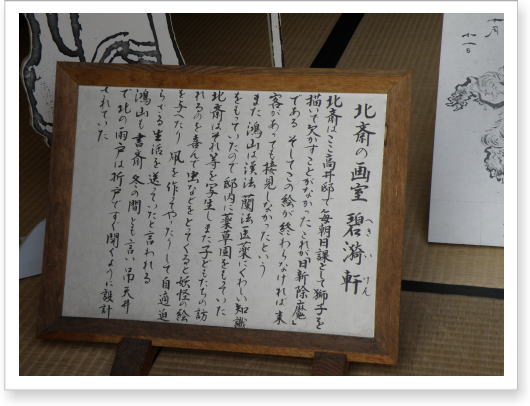 北斎の画室 碧漪軒
へきいけん
北斎はここ高井邸で毎朝日課として獅子を
描いて欠かすことがなかった これが「日新除魔」
である そしてこの絵が終わらなければ来
客があっても接見しなかったという
また鴻山は漢法 蘭法医薬にくわしい知識
をもっていたので邸内に薬草園をもっていた
北斎はそれ等を写生しまた子どもたちの訪
れるのを喜んで虫などをとってくると妖怪の絵
を与へたり 凧を作ってやったりして自適
らせる生活を送っていたと言われる
鴻山も書斎 冬の間とも言い 吊天井
で北の雨戸は折戸ですぐ開くように設計
されていた